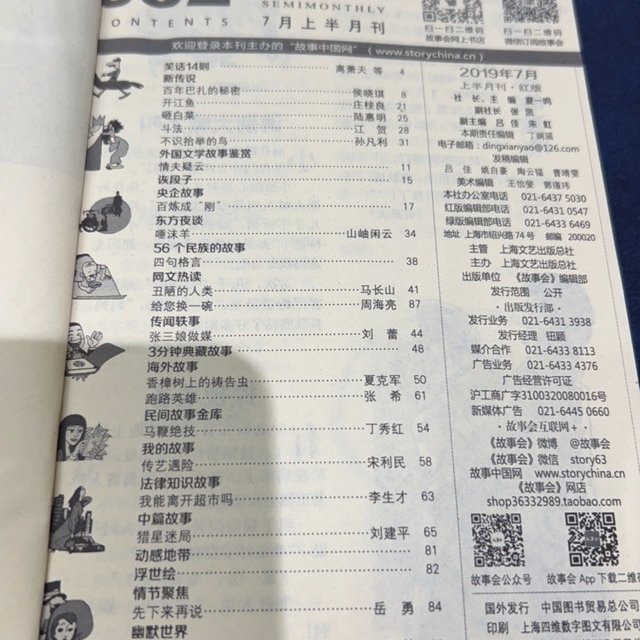 SEMIMONTHLY
CONTENTS 7月上半月刊
扫一扫二维码 扫一扫二维码
故事会网上书店 微信订阅故事会
欢迎登录本刊主办的“故事中国网”（www.storychina.cn）
笑话14则 离萧天 等 4
新传说
百年巴扎的秘密 侯晓琪 8
开江鱼 庄桂良 21
砸白菜 陆惠明 25
斗法 江 贺 28
不识抬举的鸟 孙凡利 31
外国文学故事鉴赏
情夫疑云 11
诙段子 15
央企故事
百炼成“刚” 17
东方夜谈
唾沫羊 山岫闲云 34
56个民族的故事
四句格言 38
网文热读
丑陋的人类 马长山 41
给您换一碗 周海亮 87
传闻轶事
张三娘做媒 刘 蕾 44
3分钟典藏故事 48
海外故事
香樟树上的祷告虫 夏克军 50
跑路英雄 张 希 61
民间故事金库
马鞭绝技 丁秀红 54
我的故事
传艺遇险 宋利民 58
法律知识故事
我能离开超市吗 李生才 63
中篇故事
猎星迷局 刘建平 65
动感地带 81
浮世绘 82
情节聚焦
先下来再说 岳 勇 84
幽默世界
2019年7月
上半月刊·红版
社 长、主 编 夏一鸣
副社长 张 凯
副主编 吕 佳 朱 虹
本期责任编辑 丁娴瑶
电子邮箱：dingxianyao@126.com
发稿编辑
吕 佳 姚自豪 陶云韫 曹晴雯
美术编辑 王怡斐 郭瑾玮
本社办公室电话 021-6437 5030
红版编辑部电话 021-6431 0547
绿版编辑部电话 021-6433 6469
地址 上海市绍兴路74号 邮编 200020
主管 上海文艺出版总社
主办 上海文艺出版总社
出版单位 《故事会》编辑部
发行范围 公开
·出版发行部·
发行业务 021-6431 3938
发行经理 钮颖
媒介合作 021-6433 8113
广告业务 021-6433 4376
广告经营许可证
沪工商广字3100320080016号
新媒体广告 021-6445 0660
·故事会互联网＋·
《故事会》微博 @故事会
《故事会》微信 story63
故事中国网 www.storychina.cn
《故事会》网店
shop36332989.taobao.com
故事会公众号 故事会 App 下载二维码
国外发行 中国图书贸易总公司
印刷 上海四维数字图文有限公司